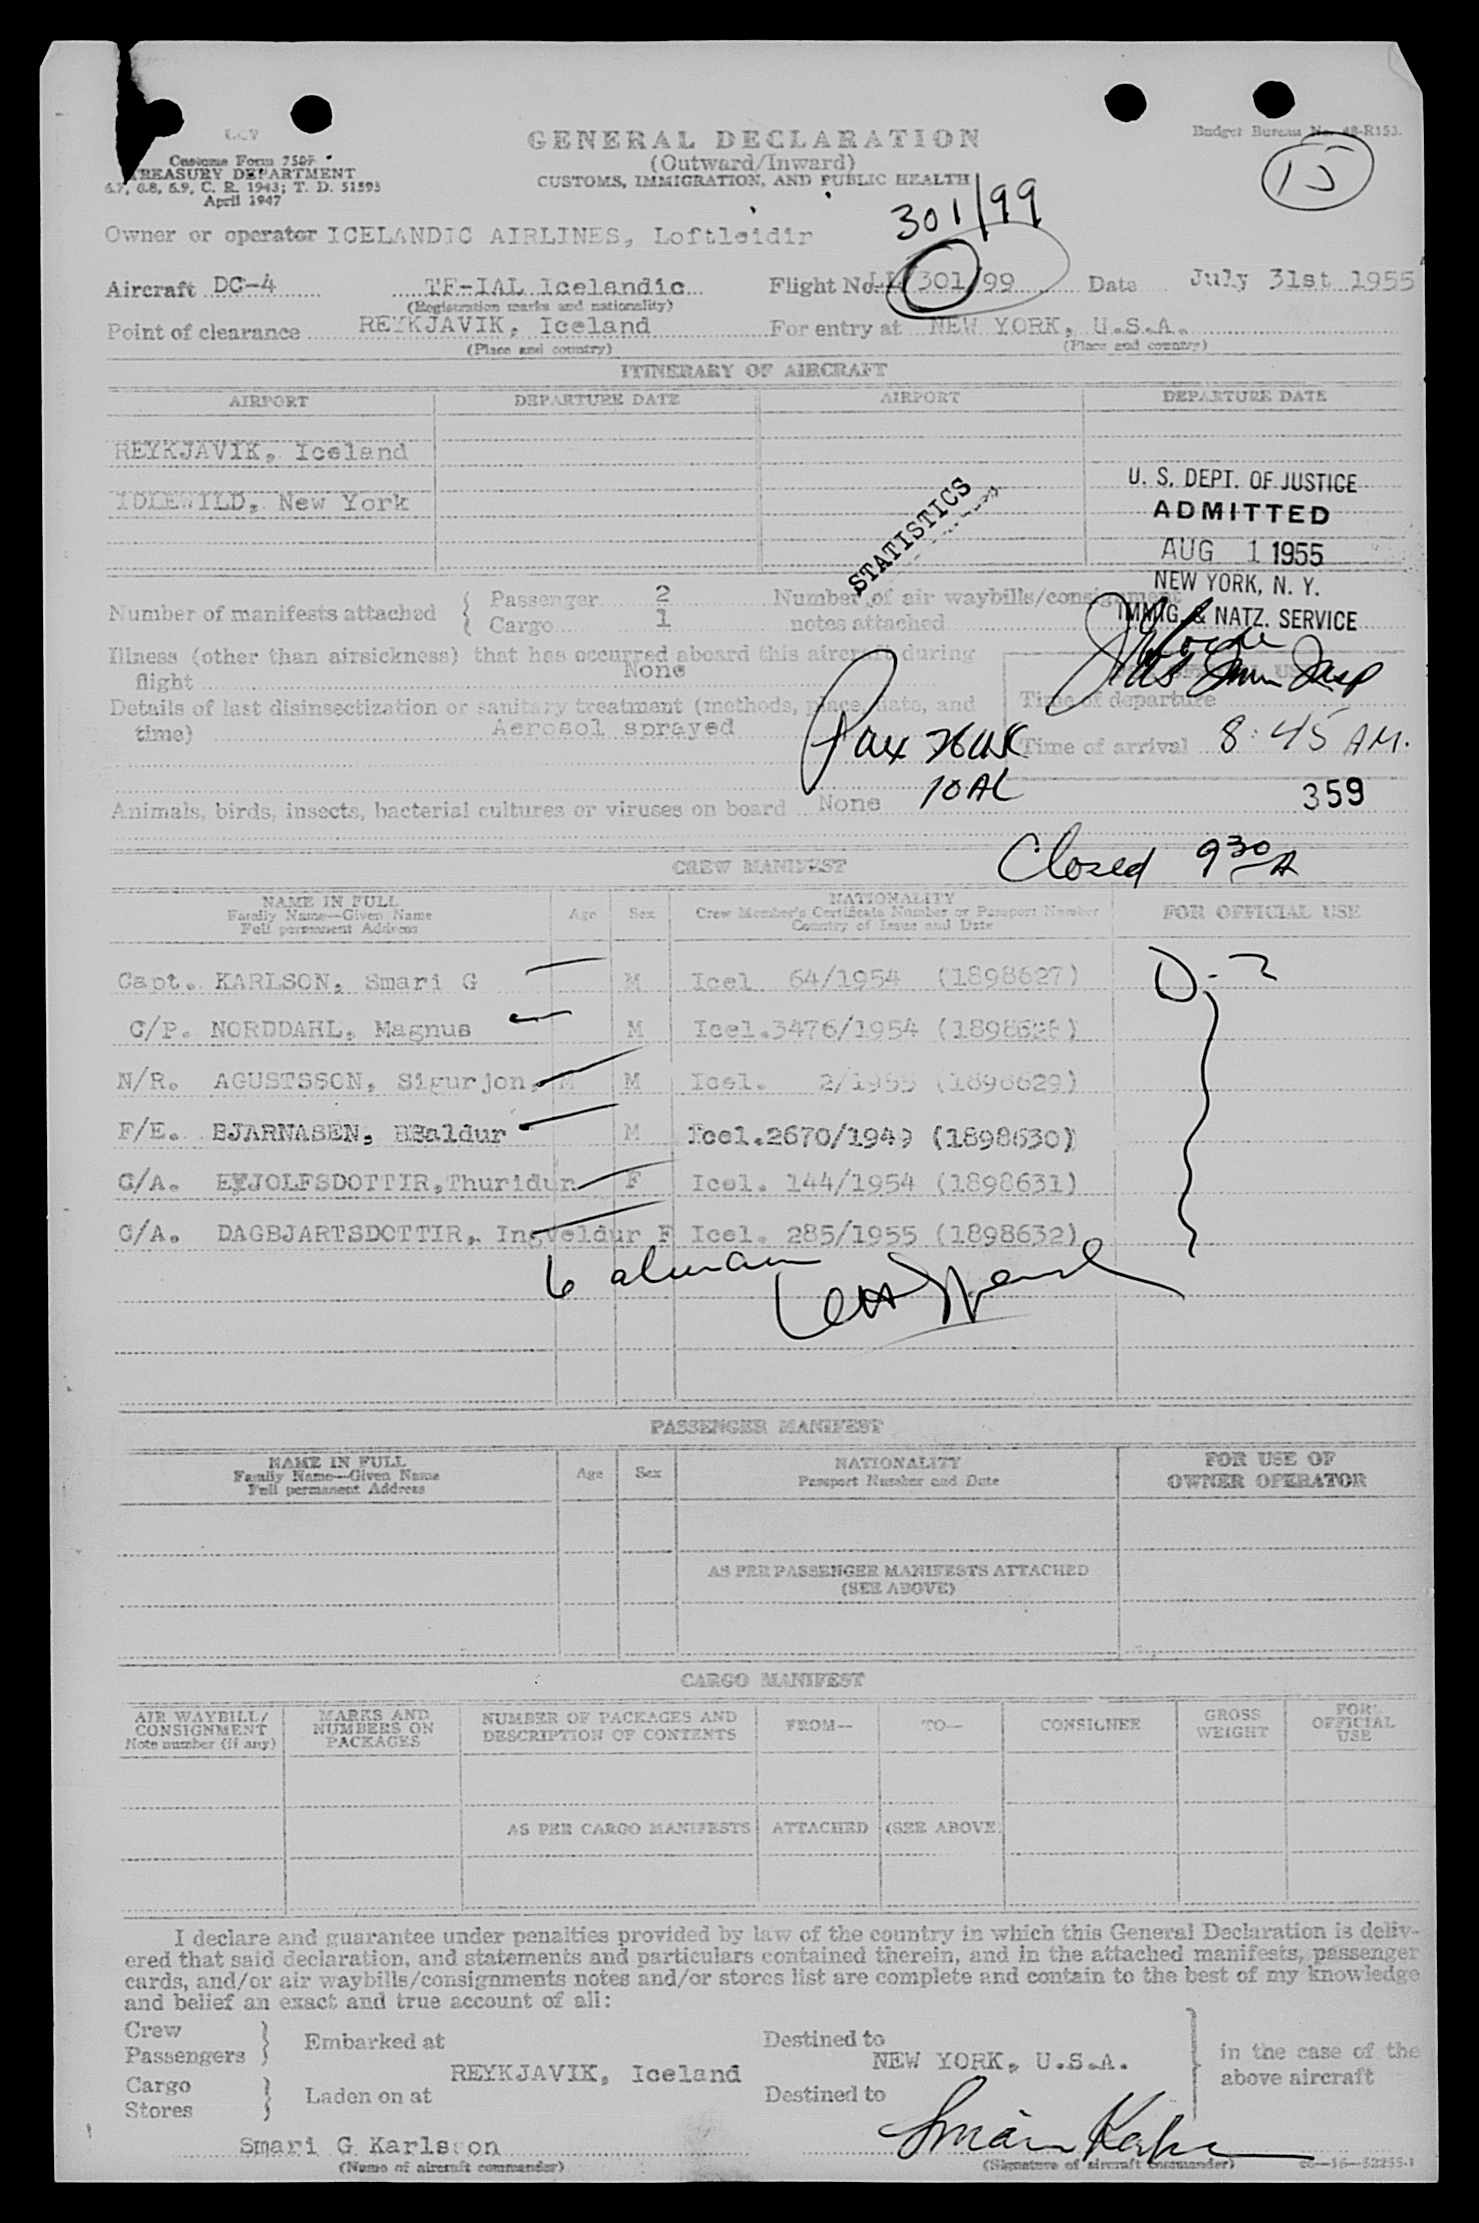 GENERAL DECLARATION
(Outward/Inward)
CUSTOMS, IMMIGRATION, AND PUBLIC HEALTH
Budget Bureau No. 48-R153.
15
Customs Form 7507
TREASURY DEPARTMENT
6.7, 6.8, 6.9, C. R. 1943; T. D. 51595
April 1947
301/99
Owner or operator ICELANDIC AIRLINES, Loftleidir
Aircraft DC-4 TF-IAL Icelandic Flight No. LL/301/99 Date July 31st 1955
(Registration marks and nationality)
Point of clearance REYKJAVIK, Iceland For entry at NEW YORK, U.S.A.
(Place and country) (Place and country)
ITINERARY OF AIRCRAFT
AIRPORT DEPARTURE DATE AIRPORT DEPARTURE DATE
REYKJAVIK, Iceland
IDLEWILD, New York
STATISTICS
U. S. DEPT. OF JUSTICE
ADMITTED
AUG 1 1955
NEW YORK, N. Y.
IMMIG. & NATZ. SERVICE
Number of manifests attached { Passenger 2 Number of air waybills/consignment
Cargo 1 notes attached
Illness (other than airsickness) that has occurred aboard this aircraft during
flight None
Details of last disinsectization or sanitary treatment (methods, place, date, and
time) Aerosol sprayed
Time of departure
Time of arrival 8:45 AM.
Pax 26 USC
10 AL
359
Animals, birds, insects, bacterial cultures or viruses on board None
Closed 9 30 A
CREW MANIFEST
NAME IN FULL
Family Name—Given Name
Full permanent Address
Age Sex
NATIONALITY
Crew Member's Certificate Number or Passport Number
Country of Issue and Date
FOR OFFICIAL USE
Capt. KARLSON, Smari G M Icel 64/1954 (1898627) D-2
C/P. NORDDAHL, Magnus M Icel.3476/1954 (1898628)
N/R. AGUSTSSON, Sigurjon, M M Icel. 2/1955 (1898629)
F/E. BJARNASEN, Baldur M Icel.2670/1949 (1898630)
C/A. EYJOLFSDOTTIR, Thuridur F Icel. 144/1954 (1898631)
C/A. DAGBJARTSDOTTIR, Ingveldur F Icel. 285/1955 (1898632)
6
PASSENGER MANIFEST
NAME IN FULL
Family Name—Given Name
Full permanent Address
Age Sex
NATIONALITY
Passport Number and Date
FOR USE OF
OWNER OPERATOR
AS PER PASSENGER MANIFESTS ATTACHED
(SEE ABOVE)
CARGO MANIFEST
AIR WAYBILL/
CONSIGNMENT
Note number (if any)
MARKS AND
NUMBERS ON
PACKAGES
NUMBER OF PACKAGES AND
DESCRIPTION OF CONTENTS
FROM— TO— CONSIGNEE
GROSS
WEIGHT
FOR
OFFICIAL
USE
AS PER CARGO MANIFESTS ATTACHED (SEE ABOVE)
I declare and guarantee under penalties provided by law of the country in which this General Declaration is deliv-
ered that said declaration, and statements and particulars contained therein, and in the attached manifests, passenger
cards, and/or air waybills/consignments notes and/or stores list are complete and contain to the best of my knowledge
and belief an exact and true account of all:
Crew
Passengers } Embarked at Destined to
REYKJAVIK, Iceland NEW YORK, U.S.A.
in the case of the
above aircraft
Cargo
Stores } Laden on at Destined to
Smari G Karlsson Smári Karlsson
(Name of aircraft commander) (Signature of aircraft commander) 16—52255-1